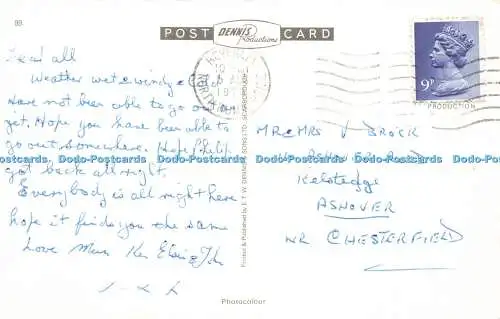 89.
POST DENNIS Productions CARD
9P
PRODUCTION
Dear all
Weather wet & windy
Have not been able to go out
yet. Hope you have been able to
go out somewhere. Hope Philip
got back all right.
Everybody is all right here
hope it finds you the same
Love Mum Ken Elsie & John
Printed & Published by E. T. W. DENNIS & SONS LTD. SCARBOROUGH
MR & MRS V BROCK
Kelstedge
ASHOVER
NR CHESTERFIELD
Photocolour
Dodo-Postcards Dodo-Postcards Dodo-Postcards Dodo-Postcards Dodo-Postcards Dodo-Postcards